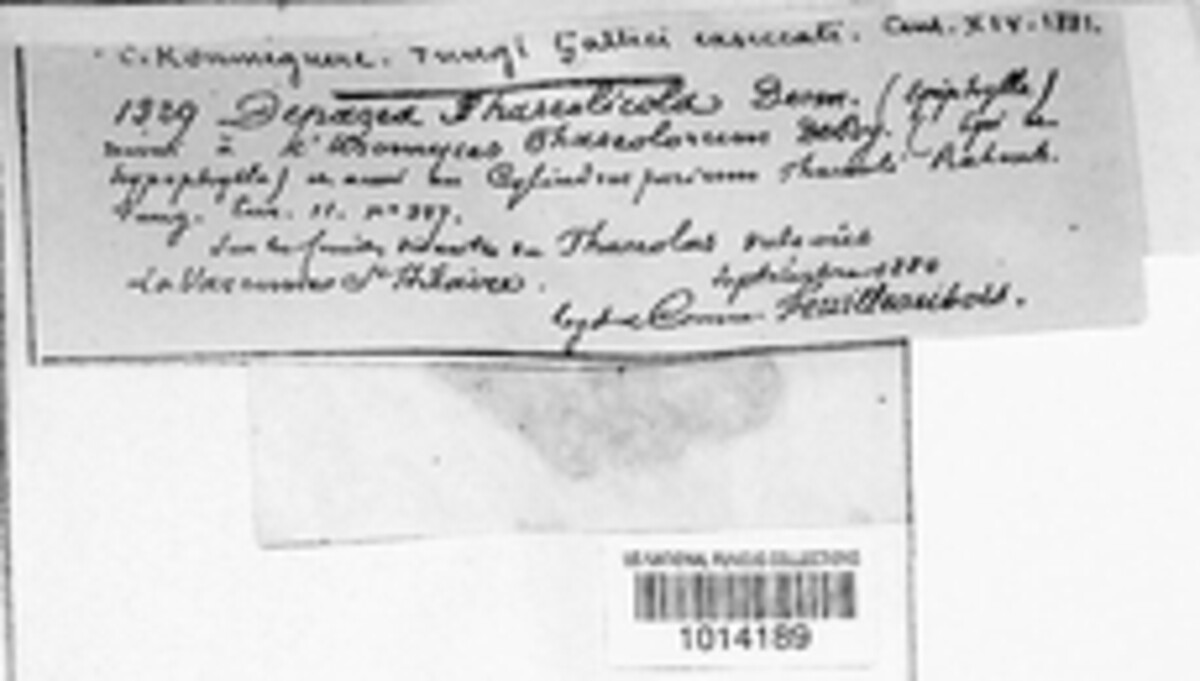 C. Roumeguère. Fungi Gallici exsiccati. Cent. XIV. 1881.
1329 Depazea Phaseolicola Desm. (Epiphylle)
à l'Uromyces Phaseolorum DeBry.
hypophylle) et aussi au Cylindrosporium Phaseoli Rabenh.
Fung. Eur. nº 327.
Sur les feuilles vivantes du Phaseolus vulgaris
La Varennes St Hilaire. septembre 1880
Comm. Feuilleaubois.
US NATIONAL FUNGUS COLLECTIONS
1014189